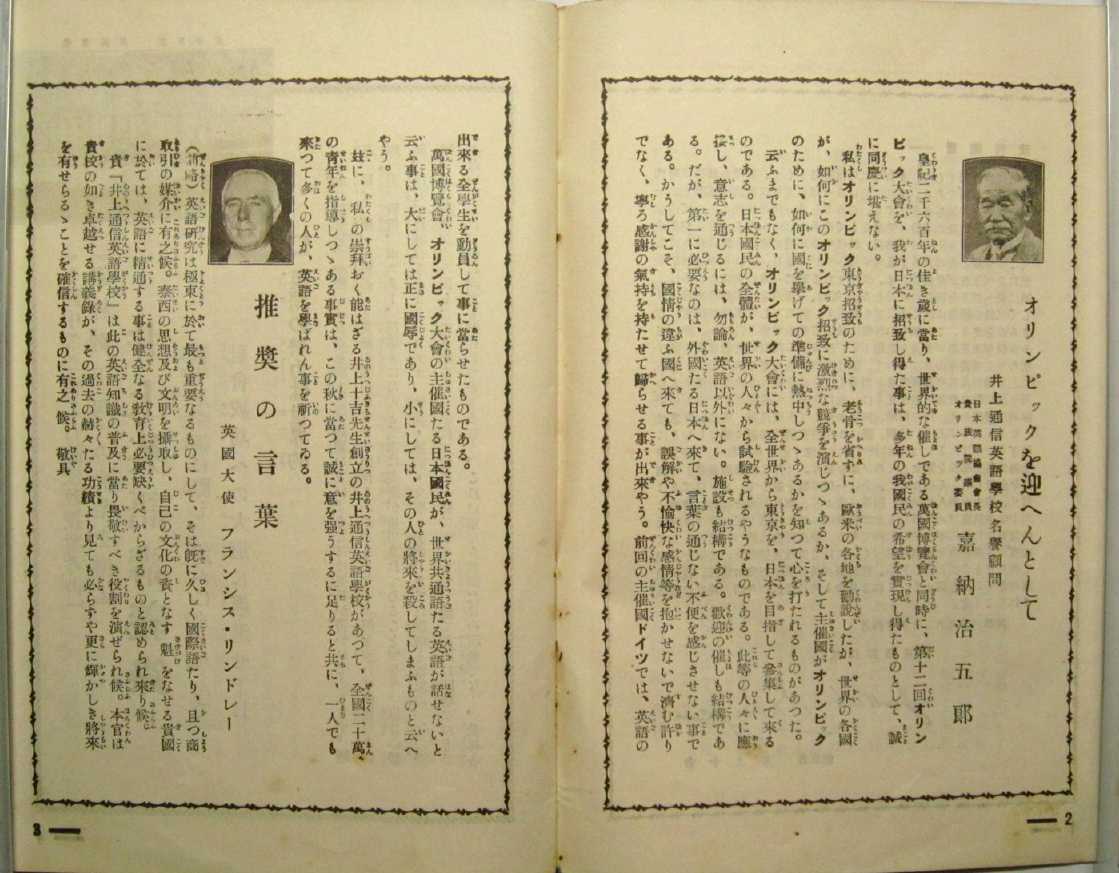 オリンピックを迎へんとして
井上通信英語學校名譽顧問
日本英語協會會長
貴族院議員
オリンピック委員
嘉納治五郎
皇紀二千六百年の佳き歲に當り、世界的な催しである萬國博覽會と同時に、第十二回オリン
ピック大會を、我が日本に招致し得た事は、多年の我國民の希望を實現し得たものとして、誠
に同慶に堪えない。
私はオリンピック東京招致のために、老骨を省すに、歐米の各地を勸說したが、世界の各國
が、如何にこのオリンピック招致に激烈な競爭を演じつゝあるか、そして主催國がオリンピック
のために、如何に國を擧げての準備に熱中しつゝあるかを知つて心を打たれるものがあつた。
云ふまでもなく、オリンピック大會には、全世界から東京を、日本を目指して參集して來る
のである。日本國民の全體が、世界の人々から試驗されるやうなものである。此等の人々に應
接し、意志を通じるには、勿論、英語以外にない。施設も結構である。歡迎の催しも結構であ
る。だが、第一に必要なのは、外國たる日本へ來て、言葉の通じない不便を感じさせない事で
ある。かうしてこそ、國情の違ふ國へ來ても、誤解や不愉快な感情等を抱かせないで濟む許り
でなく、寧ろ感謝の氣持を持たせて歸らせる事が出來やう。前回の主催國ドイツでは、英語の
2
出來る全學生を動員して事に當らせたものである。
萬國博覽會、オリンピック大會の主催國たる日本國民が、世界共通語たる英語が話せないと
云ふ事は、大にしては正に國辱であり、小にしては、その人の將來を殺してしまふものと云へ
やう。
玆に、私の崇拜おく能はざる井上十吉先生創立の井上通信英語學校があつて、全國二十萬
の靑年を指導しつゝある事實は、この秋に當つて誠に意を强うするに足りると共に、一人でも
來つて多くの人が、英語を學ばれん事を祈つてゐる。
推奬の言葉
英國大使 フランシス・リンドレー
(前略)英語硏究は極東に於て最も重要なるものにして、そは旣に久しく國際語たり、且つ商
取引の媒介に有之候。泰西の思想及び文明を攝取し、自己の文化の資となす魁をなせる貴國
に於ては、英語に精通する事は健全なる敎育上必要缺くべからざるものと認められ來り候。
貴『井上通信英語學校』は此の英語知識の普及に當り畏敬すべき役割を演ぜられ候。本官は
貴校の如き卓越せる講義錄が、その過去の赫々たる功績より見ても必らずや更に輝かしき將來
を有せらるゝことを確信するものに有之候。 敬具
3